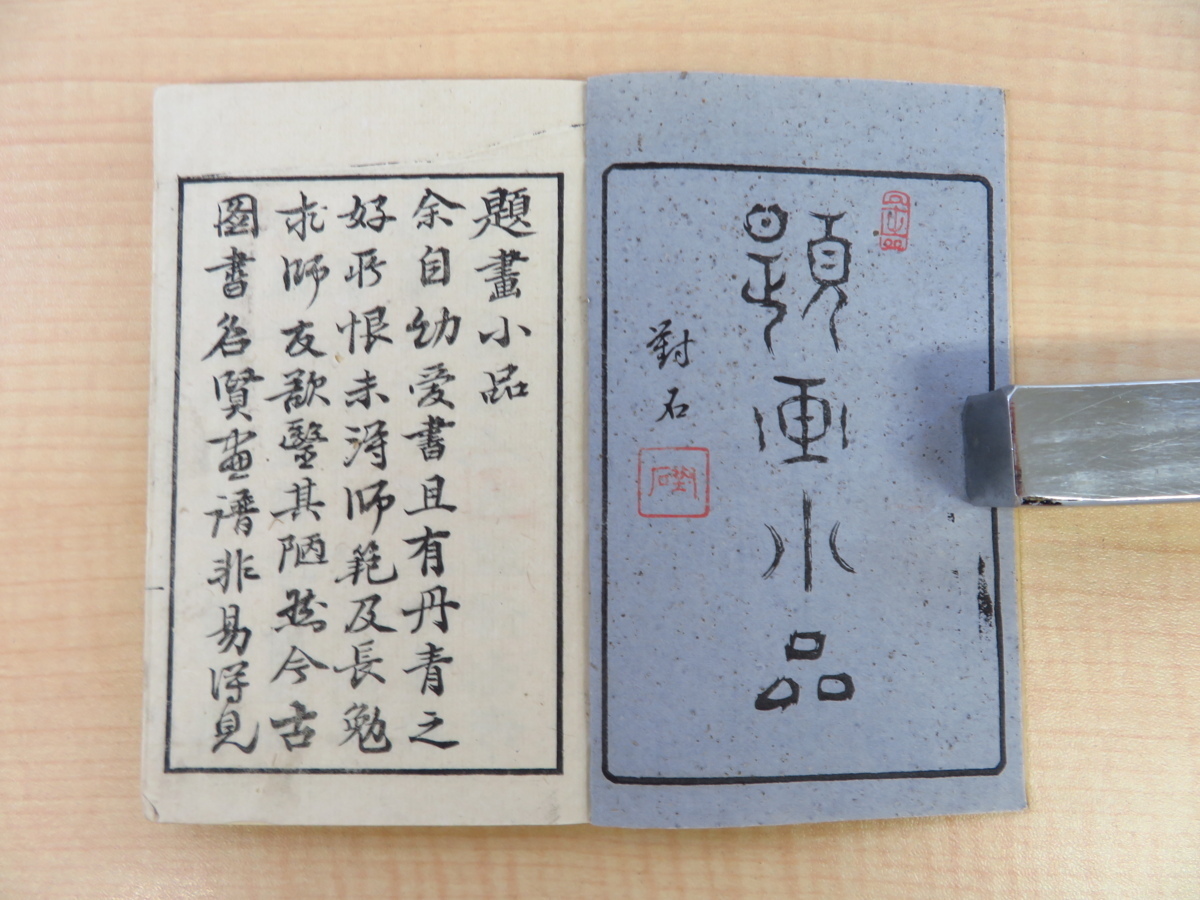 題画小品
對石
題畫小品
余自幼愛書且有丹青之
好所恨未得師範及長勉
求師友欲毉其陋然今古
圖書名賢畫譜非易得見